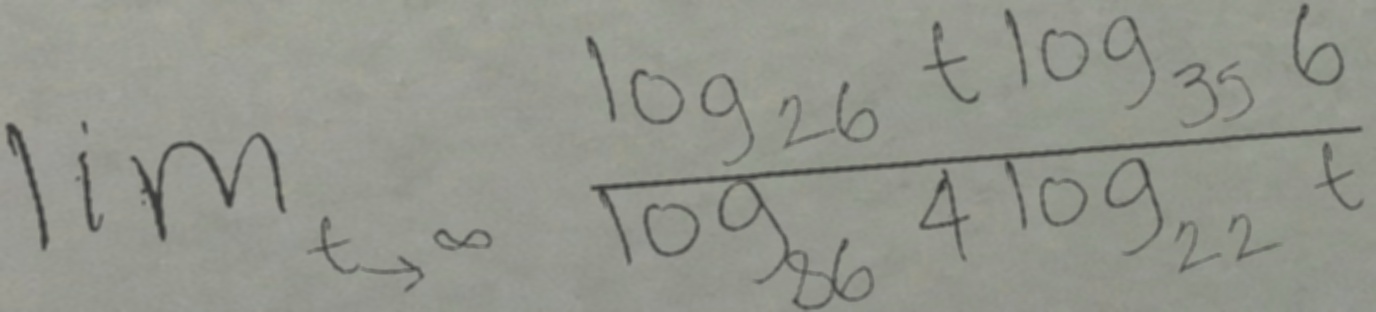 lim t→∞ log26 t log35 6
log86 4 log22 t